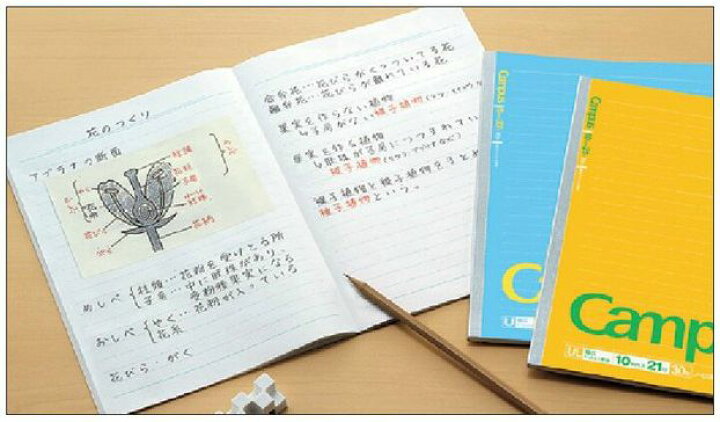 花のつくり
アブラナの断面
柱頭
花柱
子房
花びら
がく
花柄
めしべ
柱頭…花粉を受けとる所
子房…中に胚珠があり、
受粉後果実になる
おしべ
やく…花粉が入っている
花糸
花びら・がく
合弁花…花びらがくっついてる花
離弁花…花びらが離れている花
果実を作らない植物
子房がない裸子植物
果実を作る植物
胚珠が子房につつまれてい
被子植物
裸子植物と被子植物をまとめ
種子植物という。
Campus
C
Campus
Camp
10mm×21
30